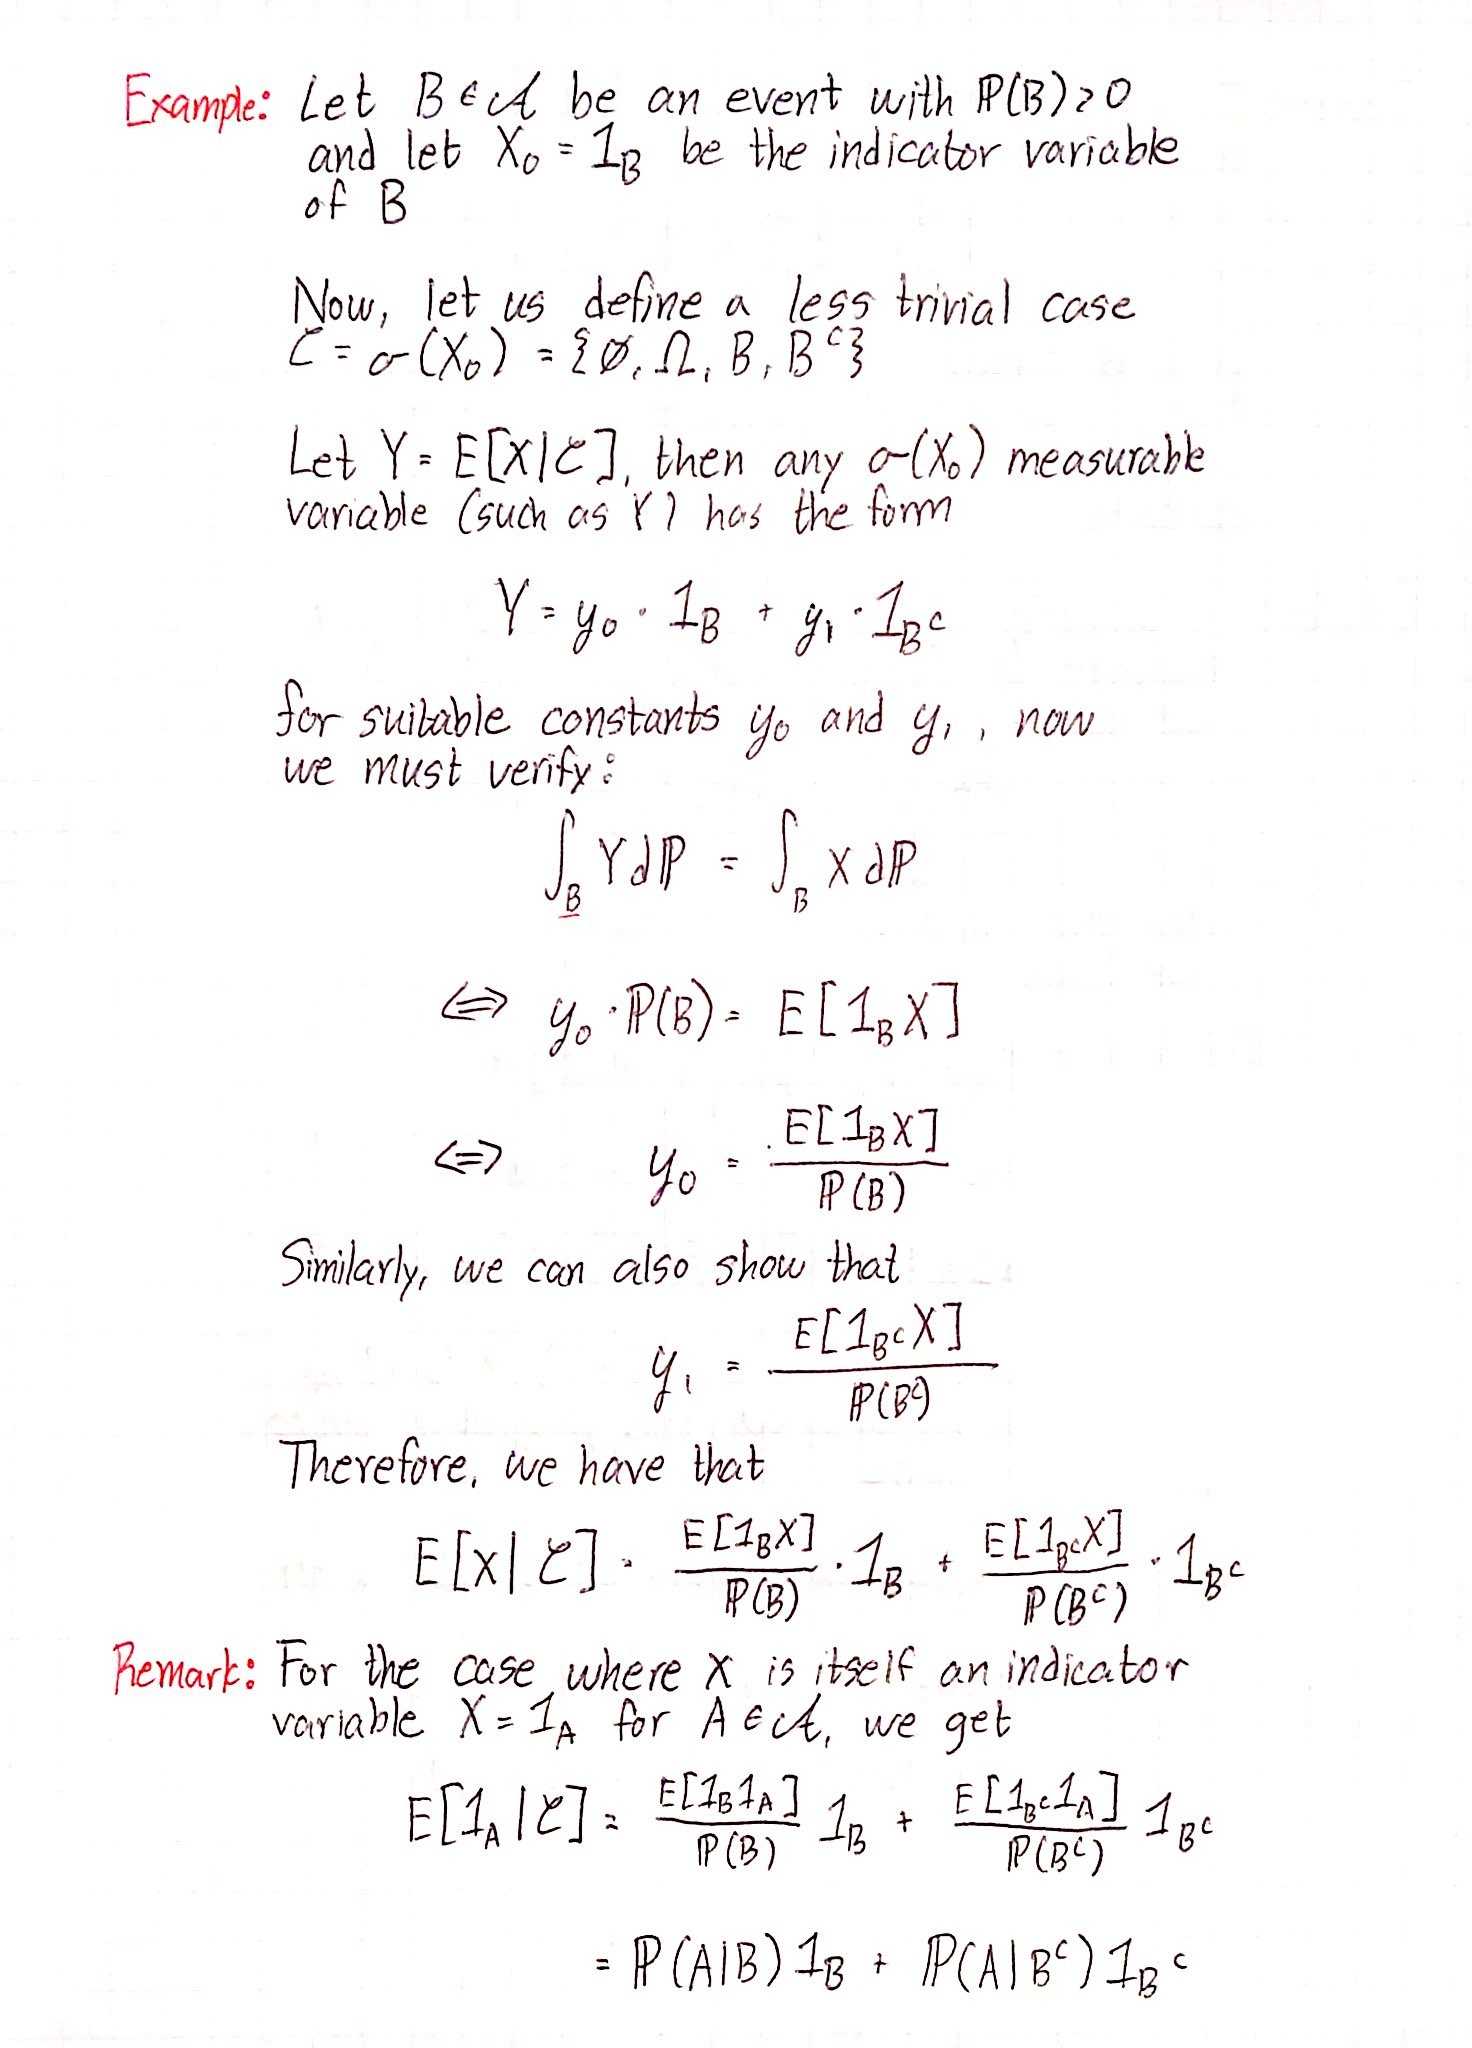 Example: Let B ∈ 𝒜 be an event with ℙ(B) > 0
and let X₀ = 1_B be the indicator variable
of B
Now, let us define a less trivial case
C = σ(X₀) = {∅, Ω, B, Bᶜ}
Let Y = E[X|𝒞], then any σ(X₀) measurable
variable (such as Y) has the form
Y = y₀ · 1_B + y₁ · 1_{Bᶜ}
for suitable constants y₀ and y₁, now
we must verify:
∫_B Y dℙ = ∫_B X dℙ
⟺ y₀ · ℙ(B) = E[1_B X]
⟺ y₀ = E[1_B X] / ℙ(B)
Similarly, we can also show that
y₁ = E[1_{Bᶜ} X] / ℙ(Bᶜ)
Therefore, we have that
E[X|𝒞] = E[1_B X] / ℙ(B) · 1_B + E[1_{Bᶜ} X] / ℙ(Bᶜ) · 1_{Bᶜ}
Remark: For the case where X is itself an indicator
variable X = 1_A for A ∈ 𝒜, we get
E[1_A|𝒞] = E[1_B 1_A] / ℙ(B) 1_B + E[1_{Bᶜ} 1_A] / ℙ(Bᶜ) 1_{Bᶜ}
= ℙ(A|B) 1_B + ℙ(A|Bᶜ) 1_{Bᶜ}